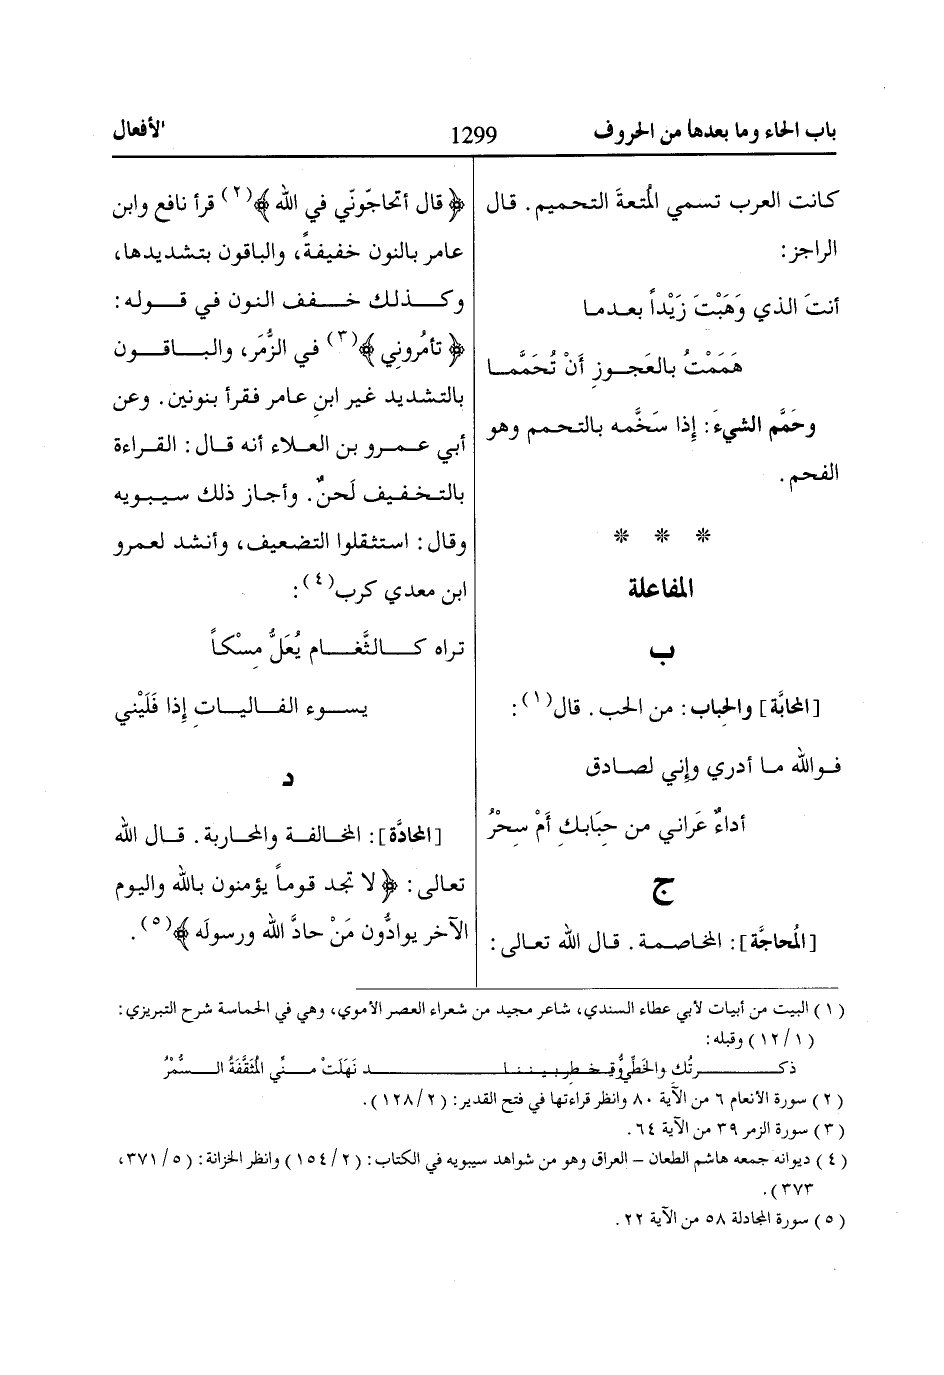 باب الحاء وما بعدها من الحروف
1299
الأفعال
كانت العرب تسمي المُتعةَ التحميم. قال
الراجز:
أنتَ الذي وَهَبْتَ زَيْداً بعدما
هَمَمْتُ بالعَجوزِ أَنْ تُحَمَّما
وحَمَّم الشيءَ: إِذا سَخَّمه بالتحمم وهو
الفحم.
* * *
المفاعلة
ب
[المحابَّة] والحِباب: من الحب. قال(١):
فوالله ما أدري وإِني لصادق
أداءٌ عَراني من حِبَابكِ أَمْ سِحْرُ
ج
[المُحاجَّة]: المخاصمة. قال الله تعالى:
﴿ قال أتحاجّونّي في الله ﴾(٢) قرأ نافع وابن
عامر بالنون خفيفةً، والباقون بتشديدها،
وكذلك خفف النون في قوله:
﴿ تأمُروني ﴾(٣) في الزُّمَر، والباقون
بالتشديد غير ابنِ عامر فقرأ بنونين. وعن
أبي عمرو بن العلاء أنه قال: القراءة
بالتخفيف لَحنٌ. وأجاز ذلك سيبويه
وقال: استثقلوا التضعيف، وأنشد لعمرو
ابن معدي كرب(٤):
تراه كالثَّغام يُعَلُّ مِسْكاً
يسوء الفالياتِ إِذا فَلَيْني
د
[المحادَّة]: المخالفة والمحاربة. قال الله
تعالى: ﴿ لا تجد قوماً يؤمنون بالله واليوم
الآخر يوادُّون مَنْ حادَّ الله ورسولَه ﴾(٥).
(١) البيت من أبيات لأبي عطاء السندي، شاعر مجيد من شعراء العصر الأموي، وهي في الحماسة شرح التبريزي:
(١/١٢) وقبله:
ذكرتُك والخَطِّيُّ يخطر بيننا وقد نَهَلَتْ مِنِّي المُثَقَّفَةُ السُّمْرُ
(٢) سورة الأنعام ٦ من الآية ٨٠ وانظر قراءتها في فتح القدير: (٢/١٢٨).
(٣) سورة الزمر ٣٩ من الآية ٦٤.
(٤) ديوانه جمعه هاشم الطعان – العراق وهو من شواهد سيبويه في الكتاب: (٢/١٥٤) وانظر الخزانة: (٥/٣٧١،
٣٧٣).
(٥) سورة المجادلة ٥٨ من الآية ٢٢.